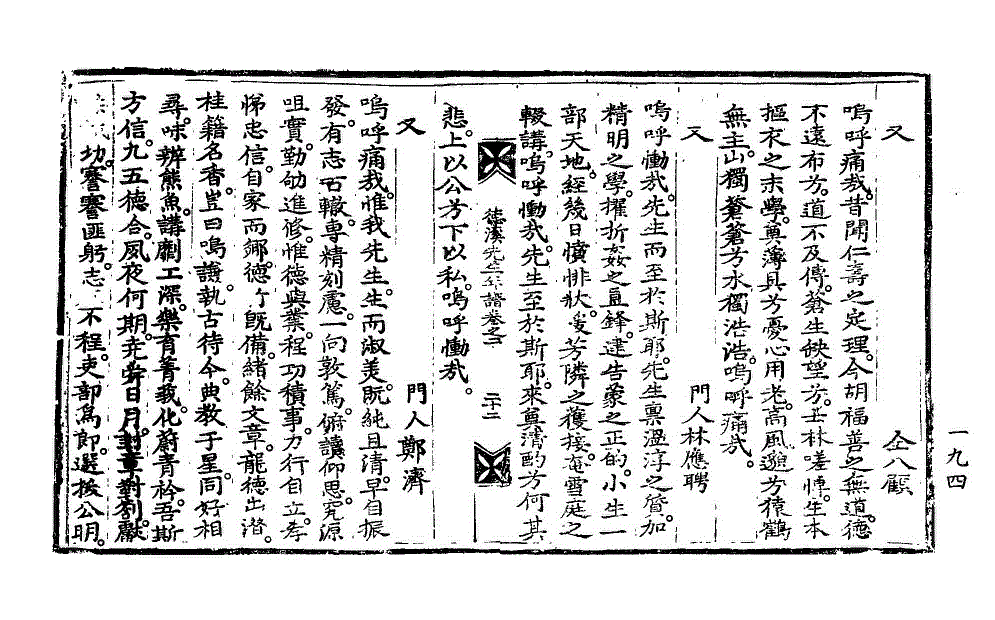 又　仝八顧
嗚呼痛哉。昔聞仁壽之定理。今胡福善之無道。德
不遠布兮。道不及傳。蒼生缺望兮。士林嗟悼。生本
摳衣之末學。奠薄具兮憂心用老。高風邈兮猿鶴
無主。山獨蒼蒼兮水獨浩浩。嗚呼痛哉。
又　門人林應聘
嗚呼慟哉。先生而至於斯耶。先生禀溫淳之質。加
精明之學。擢折姦之直鋒。建告蒙之正的。小生一
部天地。經幾日憤悱狀。爰芳隣之獲接。奄雪庭之
輟講。嗚呼慟哉。先生至於斯耶。來奠淸酌兮何其
悲。上以公兮下以私。嗚呼慟哉。
又　門人鄭濟
嗚呼痛哉。惟我先生。生而淑美。旣純且清。早自振
發。有志古轍。專精刻慮。一向敦篤。俯讀仰思。究源
咀實。勤劬進修。惟德與業。程功積事。力行自立。孝
悌忠信。自家而鄉。德行旣備。緖餘文章。龍德出潛。
桂籍名香。豈曰鳴護。執古待今。典敎于星。同好相
尋。味辨熊魚。講劘工深。樂育菁莪。化蔚靑衿。吾斯
方信。九五德合。夙夜何期。堯舜日月。封章對剳。獻
切。謇謇匪躬。志 不程。吏部爲郞。選拔公明。
德溪先生 之 二十二
一九四